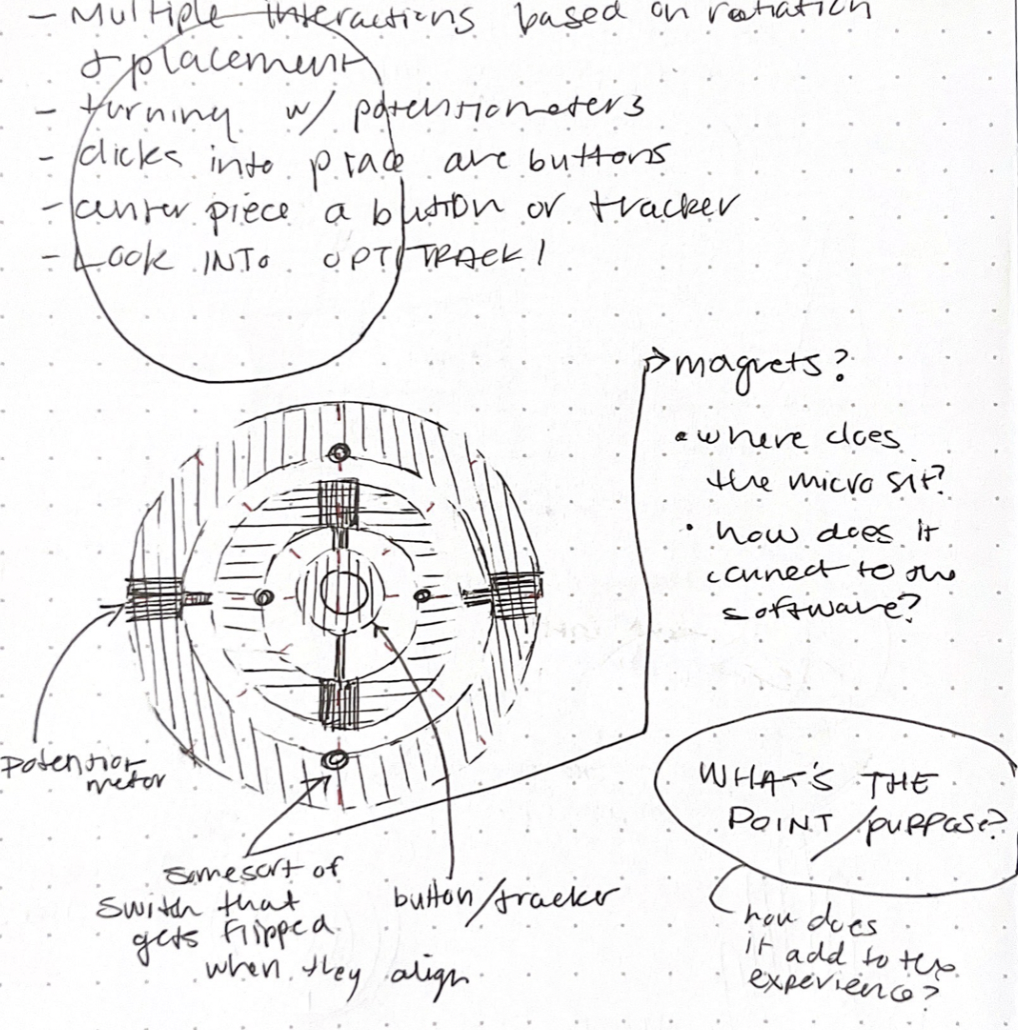 - Multiple interactions based on rotation
& placement
- turning w/ potentiometers
- clicks into place are buttons
- center piece a button or tracker
- LOOK INTO OPTITRACK!
magnets?
• where does
the micro sit?
• how does it
connect to our
software?
potentio
meter
some sort of
switch that
gets flipped
when they align
button/tracker
WHAT'S THE
POINT/purpose?
how does
it add to the
experience?